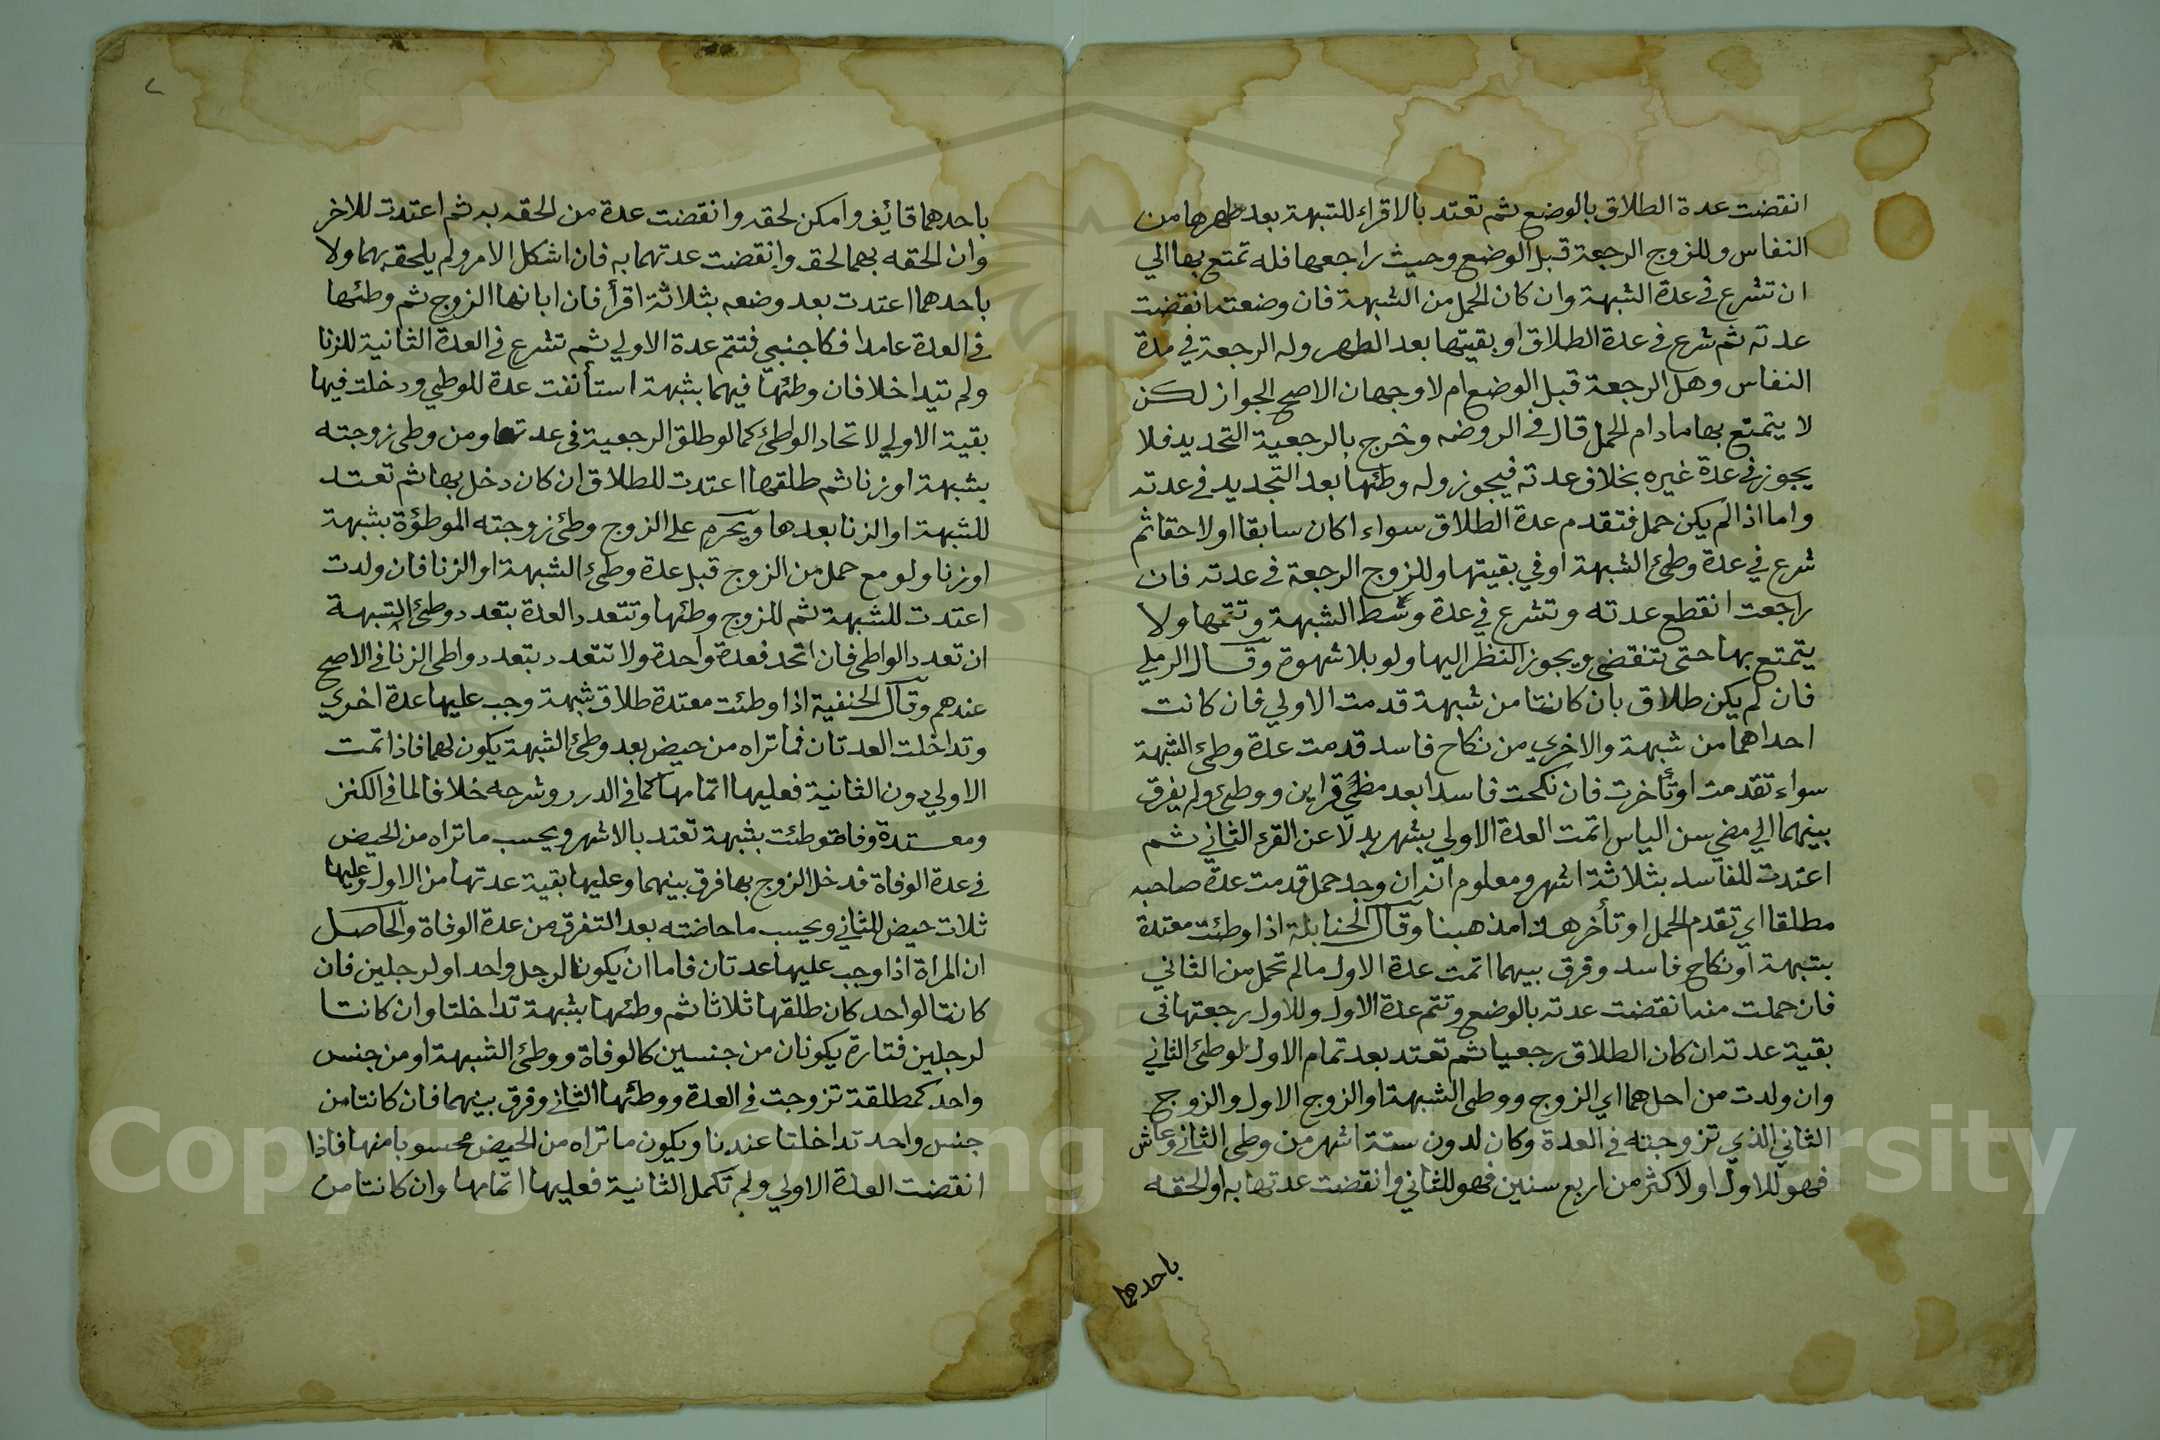 انقضت عدة الطلاق بالوضع ثم تعتد بالاقراء للشبهة بعد طهرها من
النفاس وللزوج الرجعة قبل الوضع وحيث راجعها فله تمتع بها الي
ان تشرع في عدة الشبهة وان كان الحمل من الشبهة فان وضعته انقضت
عدته ثم شرع في عدة الطلاق او بقيتها بعد الطهر وله الرجعة في مدة
النفاس وهل الرجعة قبل الوضع ام لا وجهان الاصح الجواز لكن
لا يتمتع بها مادام الحمل قال في الروضه وخرج بالرجعية التجديد فلا
يجوز في عدة غيره بخلاف عدته فيجوز وله وطئها بعد التجديد في عدته
واما اذا لم يكن حمل فتقدم عدة الطلاق سواء اكان سابقا او لاحقا ثم
شرع في عدة وطئ الشبهة او في بقيتها وللزوج الرجعة في عدته فان
راجعت انقطع عدته وتشرع في عدة وسط الشبهة وتتمها ولا
يتمتع بها حتى تنقضي ويجوز النظر اليها ولو بلا شهوة وقال الرملي
فان لم يكن طلاق بان كانتا من شبهة قدمت الاولي فان كانت
احداهما من شبهة والاخري من نكاح فاسد قدمت عدة وطئ الشبهة
سواء تقدمت او تأخرت فان نكحت فاسدا بعد مضي قراين ووطئ ولم يفرق
بينهما الي مضي سن الياس اتمت العدة الاولي بشهر بدلا عن القرء الثاني ثم
اعتدت للفاسد بثلاثة اشهر ومعلوم انه ان وجد حمل قدمت عدة صاحبه
مطلقا اي تقدم الحمل او تأخر هذا مذهبنا وقال الحنابلة اذا وطئت معتدة
بشبهة او نكاح فاسد وفرق بينهما اتمت عدة الاول ما لم تحمل من الثاني
فان حملت منه انقضت عدته بالوضع وتتم عدة الاول وللاول رجعتها في
بقية عدته ان كان الطلاق رجعيا ثم تعتد بعد تمام الاول لوطئ الثاني
وان ولدت من احدهما اي الزوج ووطى الشبهة او الزوج الاول والزوج
الثاني الذي تزوجته في العدة وكان لدون ستة اشهر من وطى الثاني وعاش
فهو للاول او لاكثر من اربع سنين فهو للثاني وانقضت عدتها به او الحقه
باحدهما
باحدهما قائف وامكن لحقه وانقضت عدة من الحقه به ثم اعتدت للاخر
وان الحقه بهما لحق وانقضت عدتهما به فان اشكل الامر ولم يلحقه بهما ولا
باحدهما اعتدت بعد وضعه بثلاثة اقرأ فان ابانها الزوج ثم وطئها
في العدة عامدا فكاجنبي فتتم عدة الاولي ثم تشرع في العدة الثانية للزنا
ولم تتداخلا فان وطئها فيهما بشبهة استأنفت عدة للوطي ودخلت فيها
بقية الاولي لاتحاد الواطئ كما لو طلق الرجعية في عدتها ومن وطى زوجته
بشبهة او زنا ثم طلقها اعتدت للطلاق ان كان دخل بها ثم تعتد
للشبهة او الزنا بعدها ويحرم على الزوج وطئ زوجته الموطؤة بشبهة
او زنا ولو مع حمل من الزوج قبل عدة وطئ الشبهة او الزنا فان ولدت
اعتدت للشبهة ثم للزوج وطئها وتتعدد العدة بتعدد وطئ الشبهة
ان تعدد الواطي فان اتحد فعدة واحدة ولا تتعدد بتعدد واطى الزنا في الاصح
عندهم وقال الحنفية اذا وطئت معتدة طلاق شبهة وجب عليها عدة اخري
وتداخلت العدتان فما تراه من حيض بعد وطئ الشبهة يكون لهما فاذا تمت
الاولي دون الثانية فعليها اتمامها كما في الدرر وشرحه خلافا لما في الكنز
ومعتدة وفاة وطئت بشبهة تعتد بالاشهر ويحسب ما تراه من الحيض
في عدة الوفاة فدخل الزوج بها فرق بينهما وعليها بقية عدتها من الاول وعليها
ثلاث حيض للثاني ويحسب ما حاضته بعد التفرق من عدة الوفاة والحاصل
ان المراة اذا وجب عليها عدتان فاما ان يكونا لرجل واحد او لرجلين فان
كانتا لواحد كان طلقها ثلاثا ثم وطئها بشبهة تداخلتا وان كانتا
لرجلين فتارة يكونان من جنسين كالوفاة ووطئ الشبهة او من جنس
واحد كمطلقة تزوجت في العدة ووطئها الثاني وفرق بينهما فان كانتا من
جنس واحد تداخلتا عندنا ويكون ما تراه من الحيض محسوبا منها فاذا
انقضت العدة الاولي ولم تكمل الثانية فعليها اتمامها وان كانتا من
Copyright © King Saud University